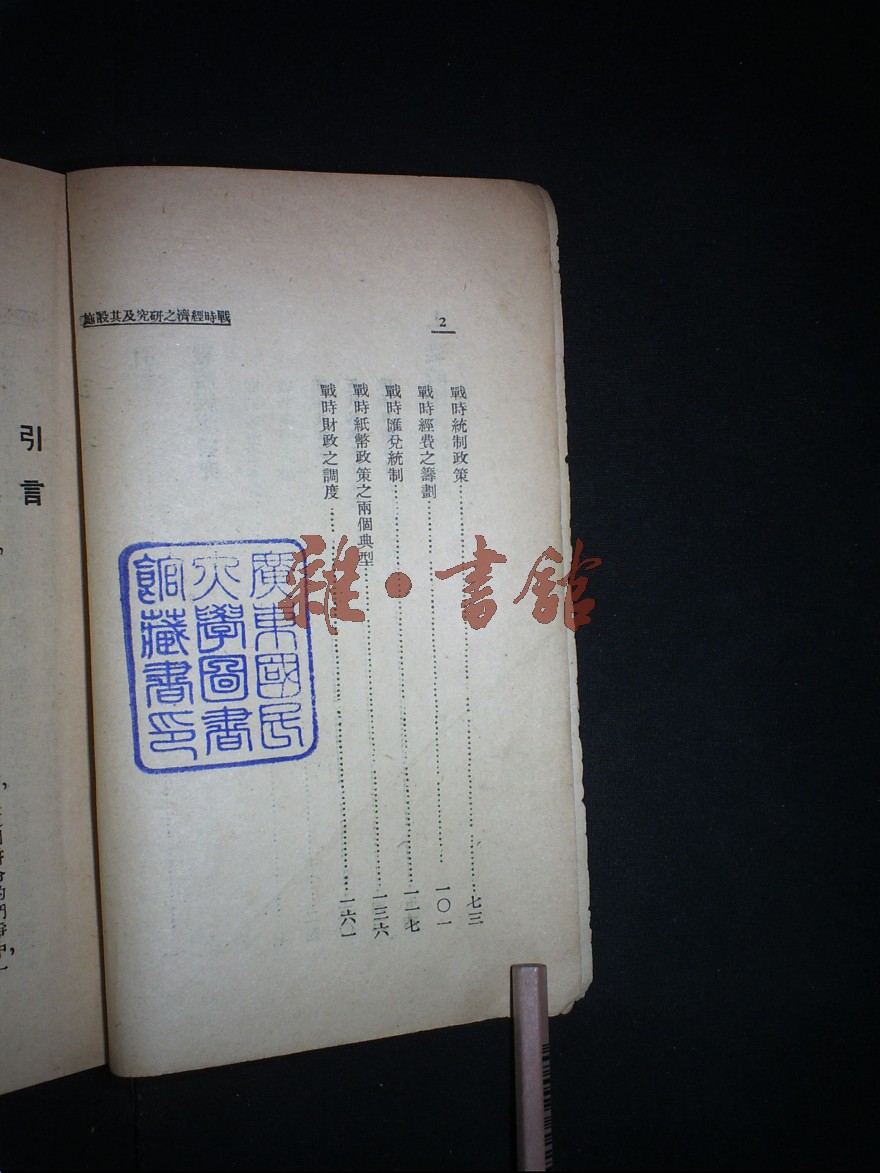 2
戰時經濟之研究及其設施
戰時統制政策……七三
戰時經費之籌劃……一〇一
戰時匯兌統制……一一七
戰時紙幣政策之兩個典型……一三六
戰時財政之調度……一六一
廣東國民
大學圖書
館藏書印
雅·書館
引言